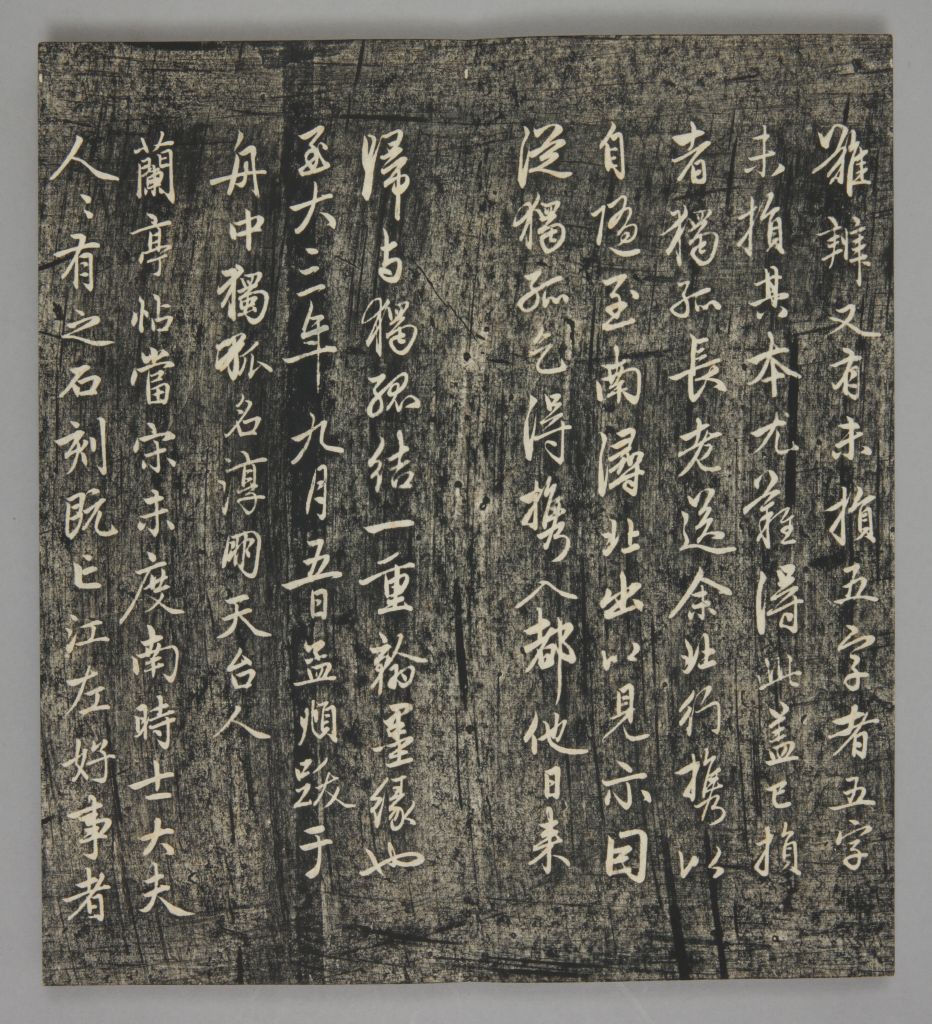 難辨又有未損五字者五字
未損其本尤難得此盖已損
者獨孤長老送余北行攜以
自隨至南潯北出以見示因
從獨孤乞得攜入都他日来
歸与獨孤結一重翰墨緣也
至大三年九月五日孟頫跋于
舟中獨孤名淳朋天台人
蘭亭帖當宋未度南時士大夫
人〻有之石刻既亡江左好事者